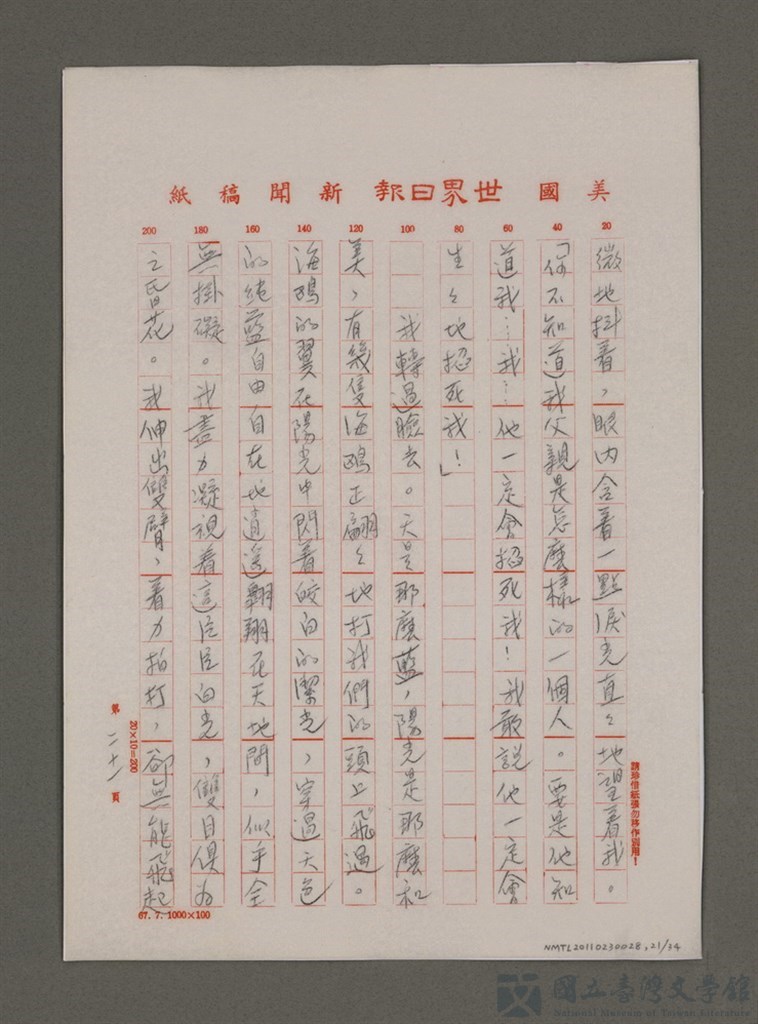 美國世界日報新聞稿紙
20
40
60
80
100
120
140
160
180
200
微地抖着，眼内含着一點淚光直々地望着我。
「你不知道我父親是怎麼樣的一個人。要是他知
道我…我…他一定會掐死我！我敢說他一定會
生々地掐死我！」
我轉過臉去。天是那麼藍，陽光是那麼和
美，有幾隻海鷗正翩々地打我們的頭上飛過。
海鷗的翼在陽光中閃着皎白的潔光，穿過天色
的純藍自由自在地逍遙翱翔在天地間，似乎全
無掛礙。我盡力凝視着這片白光，雙目俱為
之昏花。我伸出雙臂，着力拍打，卻無能飛起
請珍惜紙張勿移作別用！
20×10=200
第二十一頁
67.7.1000×100
NMTL20110230028,21/34
國立臺灣文學館
National Museum of Taiwan Literature